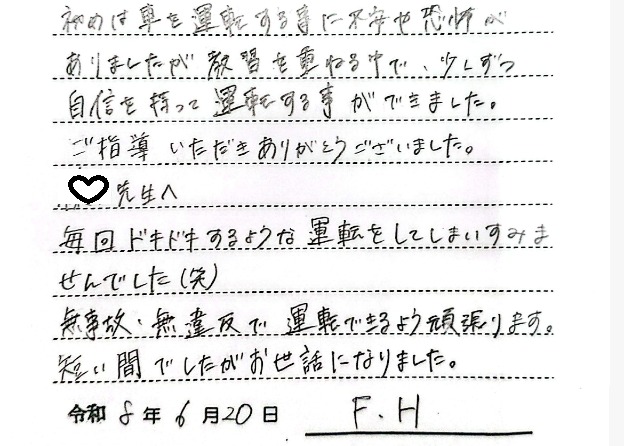 初めは車を運転する事に不安や恐怖が
ありましたが教習を重ねる中で、少しずつ
自信を持って運転する事ができました。
ご指導いただきありがとうございました。
先生へ
毎回ドキドキするような運転をしてしまいすみま
せんでした(笑)
無事故・無違反で運転できるよう頑張ります。
短い間でしたがお世話になりました。
令和8年6月20日 F.H